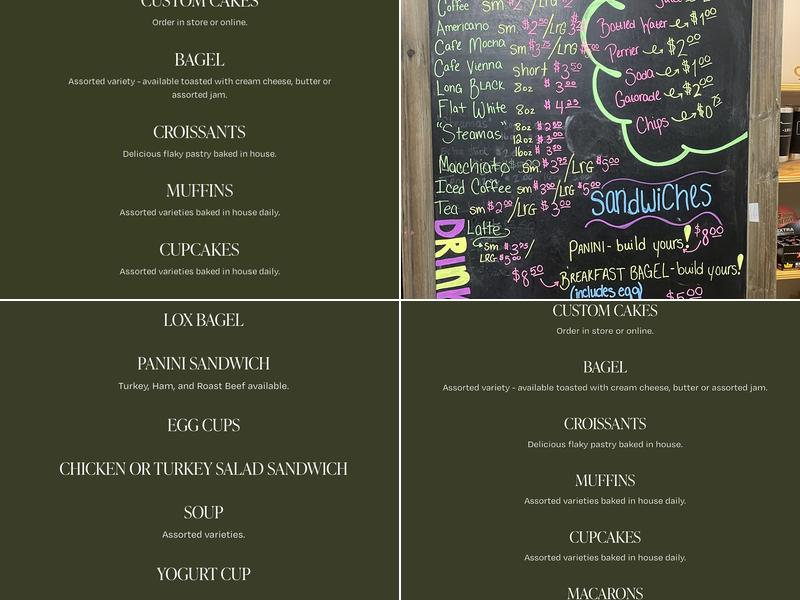 CUSTOM CAKES
Order in store or online.
BAGEL
Assorted variety - available toasted with cream cheese, butter or
assorted jam.
CROISSANTS
Delicious flaky pastry baked in house.
MUFFINS
Assorted varieties baked in house daily.
CUPCAKES
Assorted varieties baked in house daily.
Coffee sm $2
Americano sm $2.50/LRG
Cafe Mocha sm $3.75/LRG $5.00
Cafe Vienna short $3.50
Long BLACK 8oz $3.00
Flat White 8oz $4.25
"Steamas" 8oz $2.50
12oz $3.00
16oz $3.50
Macchiato sm. $3.95/LRG $5.00
Iced Coffee sm $3.00/LRG $5.00
Tea sm $2.00/LRG $3.00
Latte
sm $3.95/
LRG $5.00
DRINK
Juice
Bottled Water $1.00
Perrier $2.00
Soda $1.00
Gatorade $2.00
Chips $0.75
Sandwiches
PANINI - build yours! $8.00
$8.50 BREAKFAST BAGEL - build yours!
(includes egg) $5.00
LOX BAGEL
PANINI SANDWICH
Turkey, Ham, and Roast Beef available.
EGG CUPS
CHICKEN OR TURKEY SALAD SANDWICH
SOUP
Assorted varieties.
YOGURT CUP
CUSTOM CAKES
Order in store or online.
BAGEL
Assorted variety - available toasted with cream cheese, butter or assorted jam.
CROISSANTS
Delicious flaky pastry baked in house.
MUFFINS
Assorted varieties baked in house daily.
CUPCAKES
Assorted varieties baked in house daily.
MACARONS